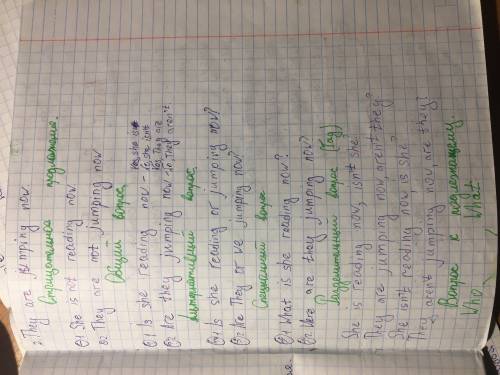 2: They are jumping now
Отрицательное предложение.
@1: She is not reading now.
@2: They are not jumping now
Общий вопрос
@1: Is she reading now - Yes she is
No she isn't
@2: Are they jumping now - Yes they are
No they aren't
Альтернативный вопрос
@1: Is she reading or jumping now?
@2: Are They or we jumping now?
Специальный вопрос
@1: What is she reading now?
@2: Where are they jumping now?
Разделительный вопрос (Tag)
She is reading now, isn't she.
They are jumping now, aren't they?
She isn't reading now, is she.
They aren't jumping now, are they?
Вопрос к подлежащему.
Who What